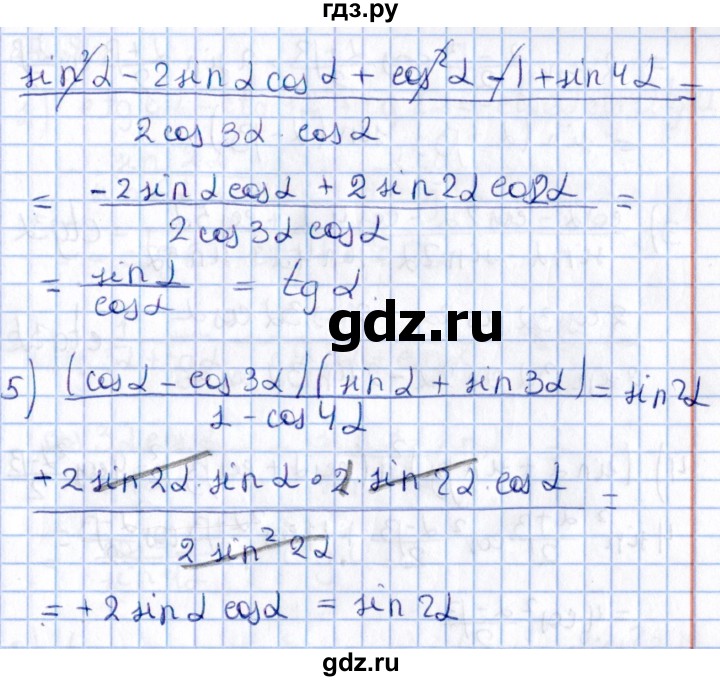 гдз.ру
sin²α - 2sinα cosα + cos²α - 1 + sin4α =
2cos3α · cosα
= -2sinαcosα + 2sin2αcos2α =
2cos3αcosα
= sinα = tgα
cosα
gdz.ru
5) (cosα - cos3α)(sinα + sin3α) = sin2α
1 - cos4α
+2sin2α · sinα · 2 · sin2α · cosα =
2sin²2α
= +2sinαcosα = sin2α
gdz.ru